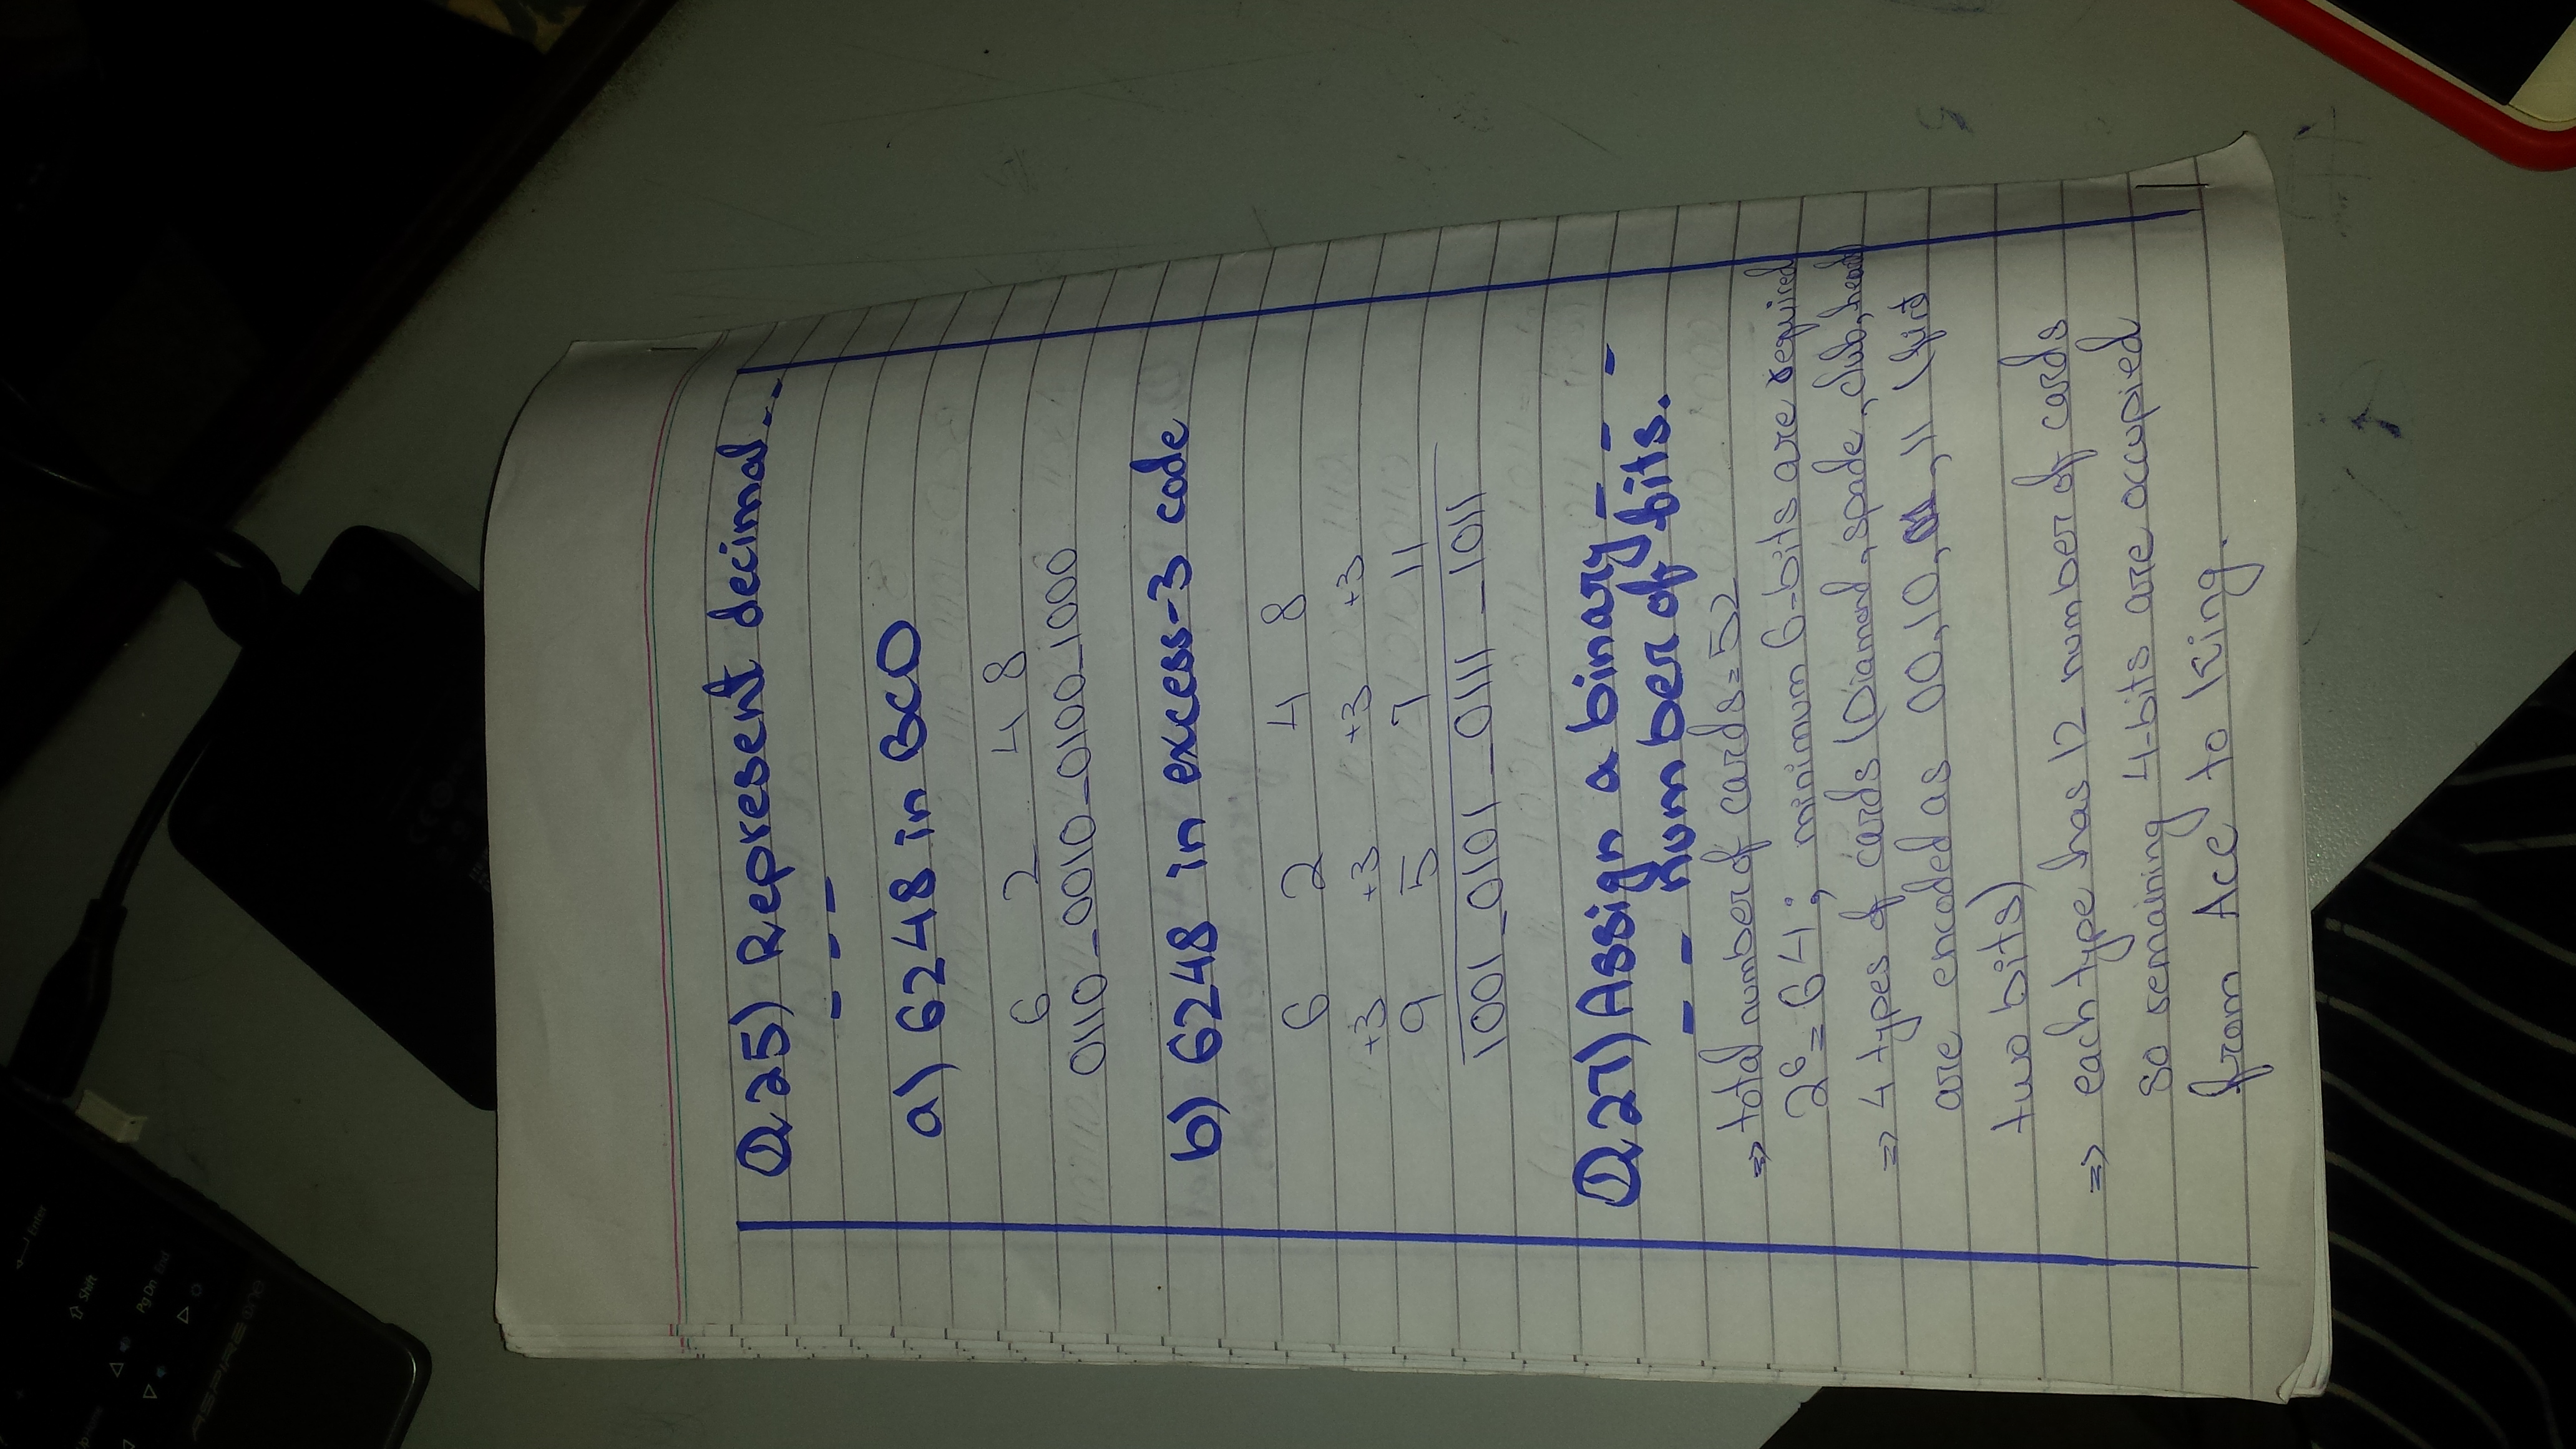 Enter
Shift
Pg Dn End
ASPIRE one
Q25) Represent decimal..
- - -
a) 6248 in BCD
6 2 4 8
0110_0010_0100_1000
b) 6248 in excess-3 code
6 2 4 8
+3 +3 +3 +3
9 5 7 11
1001_0101_0111_1011
Q27) Assign a binary - - -
- - number of bits.
=> total number of cards = 52
2⁶ = 64; minimum 6-bits are required
=> 4 types of cards (Diamond, spade, club, heart
are encoded as 00, 10, 01, 11 (first
two bits)
=> each type has 12 number of cards
so remaining 4-bits are occupied
from Ace to King.